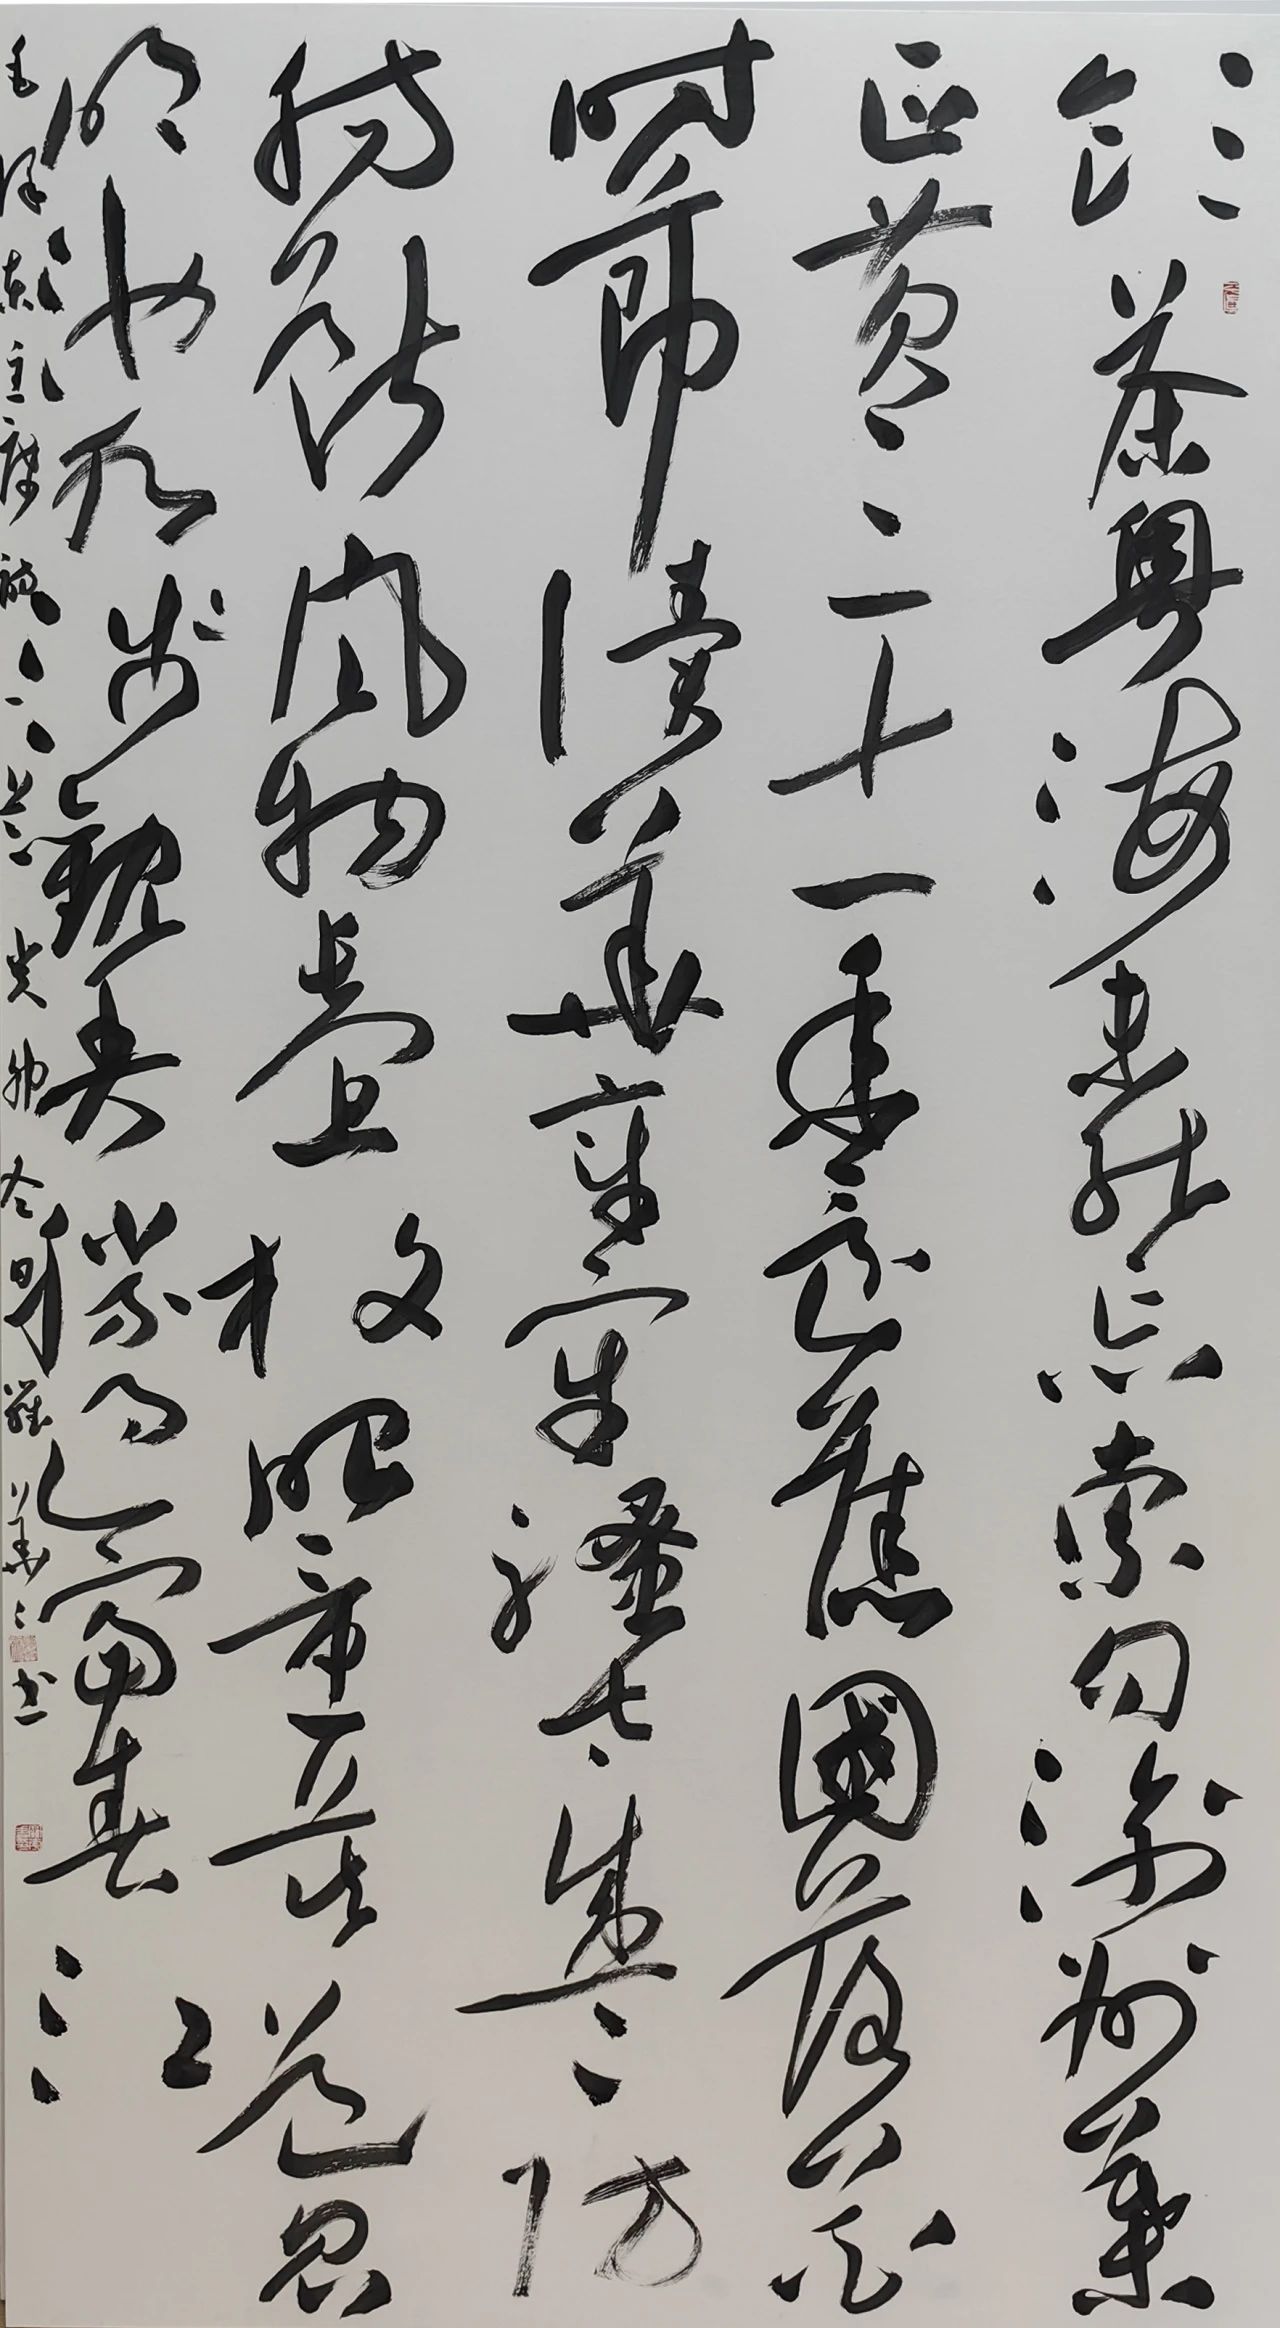 飲茶粵海未能忘索句渝州葉
正黃三十一年還舊國落花
時節讀華章牢騷太盛防
腸斷風物長宜放眼量莫道昆
明池水淺觀魚勝過富春江
毛澤東主席詩一首癸卯冬書